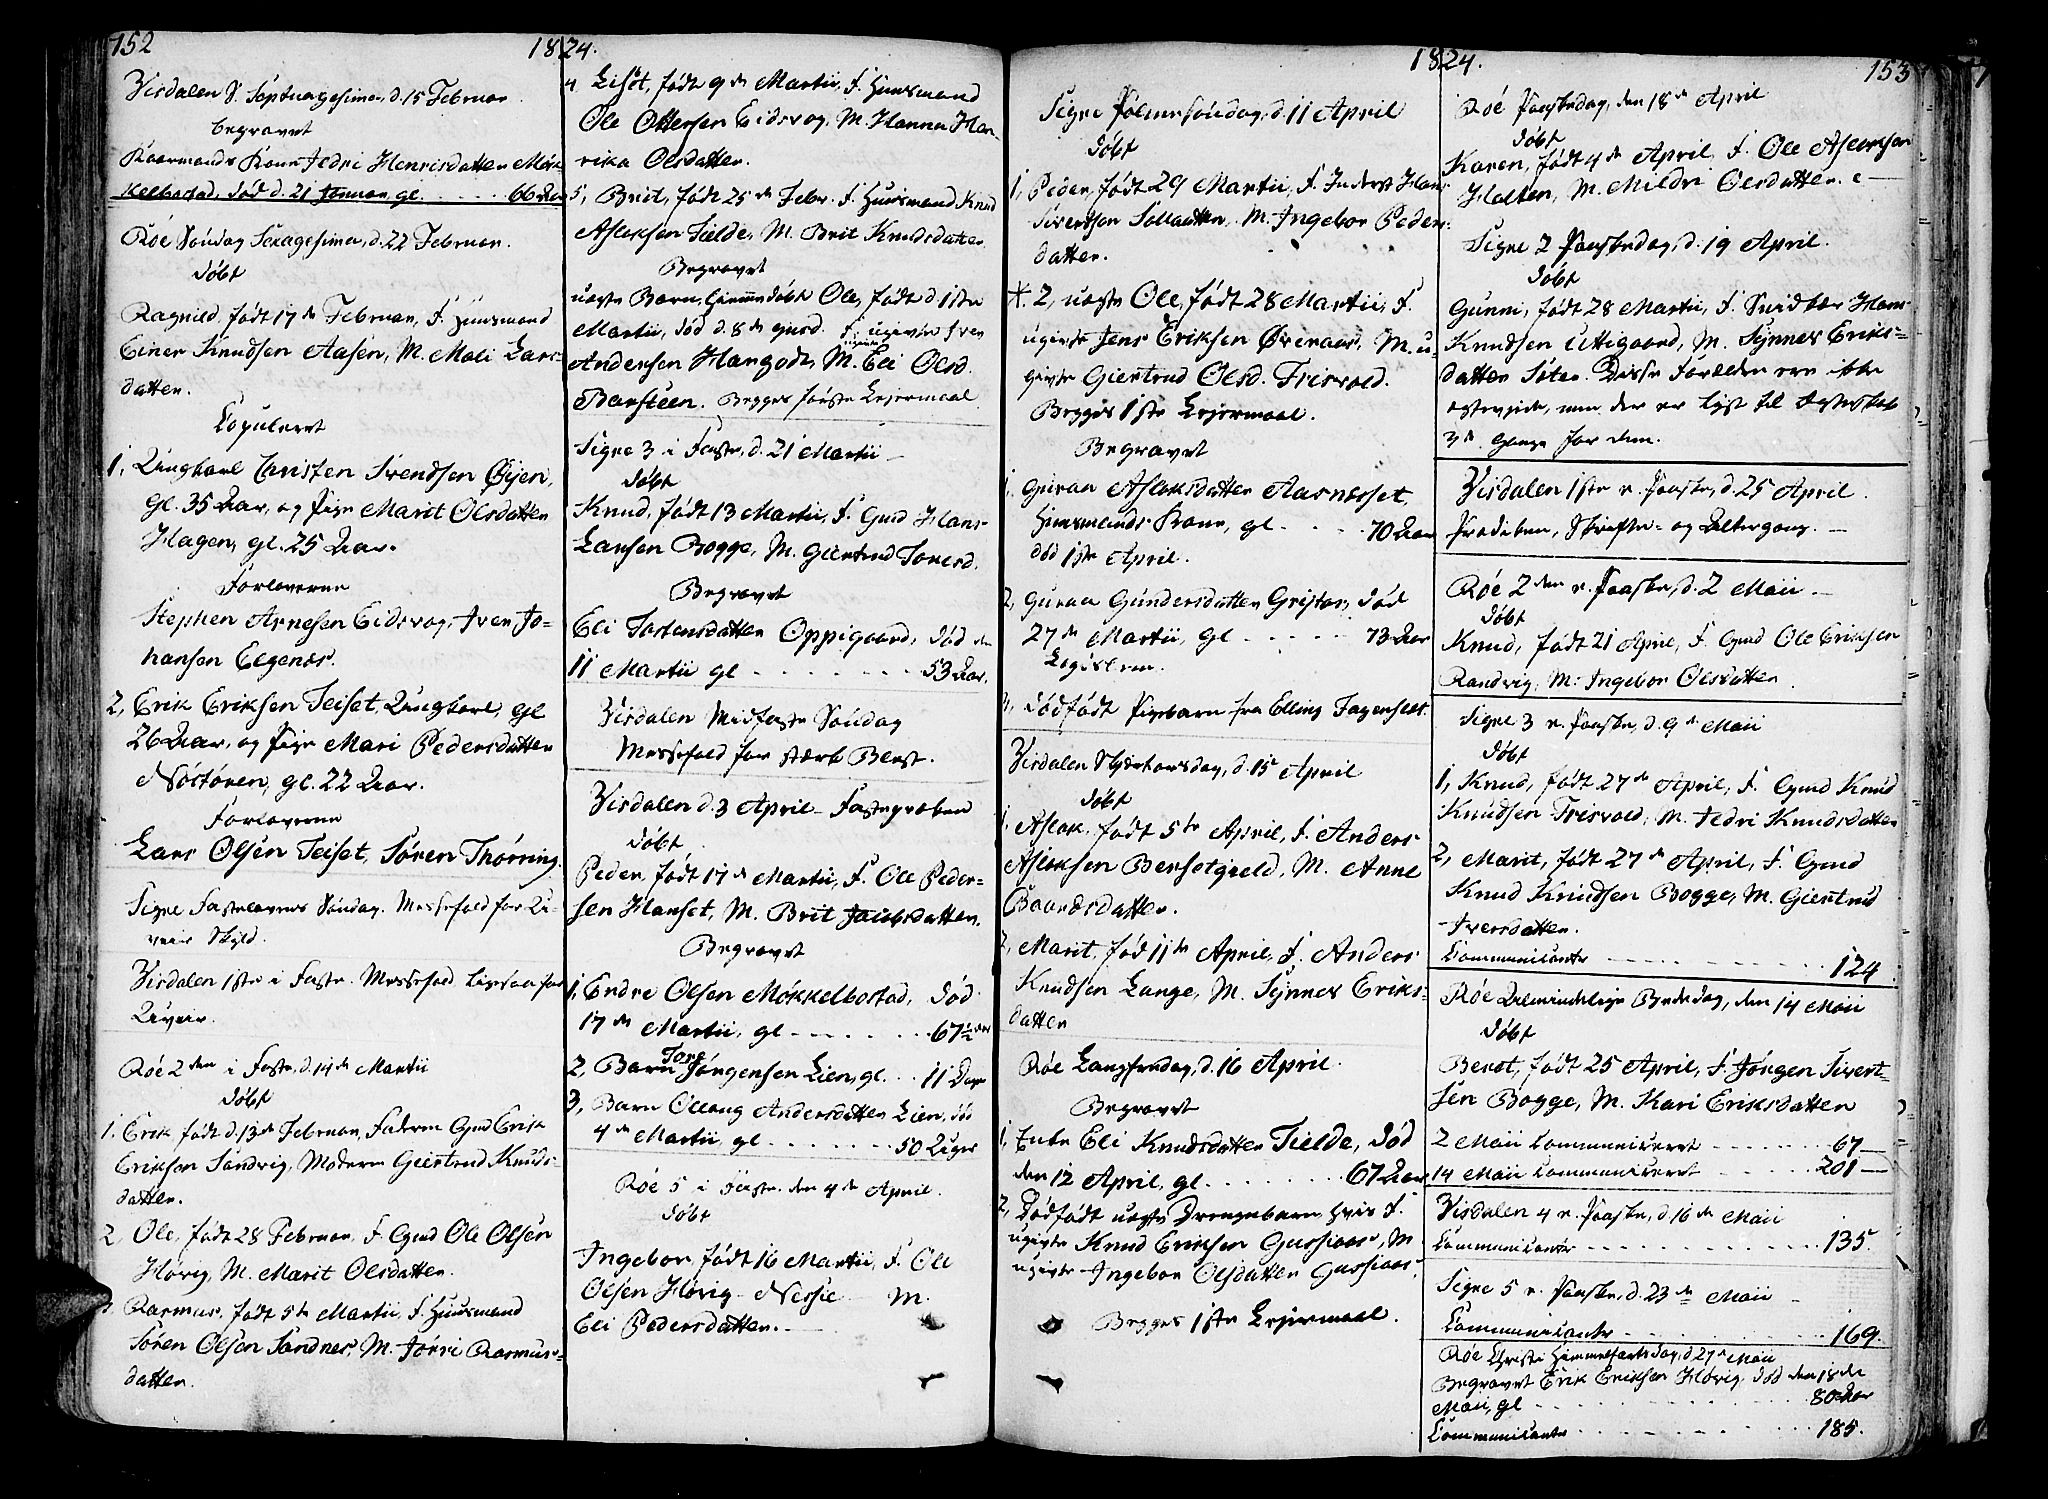 152
1824.
Visdalen S. Septuagesima, d. 15 Februar.
begravet
Kaarmands Kone Jedri Henrisdatter Møk-
kelbostad, død d. 21 Januar, gl. . . . . . 66 Aar
Røe Søndag Sexagesima, d. 22 Februar.
døbt
Ragnild, født 17de Februar, F. Huusmand
Einer Knudsen Aasen, M. Mali Lars-
datter.
Copuleret
1, Ungkarl Christen Svendsen Øijen,
gl. 35 Aar, og Pige Marit Olsdatter
Hagen, gl. 25 Aar.
Forloverne
Stephen Arnesen Eidsvog, Iver Jo-
hansen Elgenæs.
2, Erik Eriksen Teiset, Ungkarl, gl.
26 Aar, og Pige Mari Pedersdatter
Nöstören, gl. 22 Aar.
Forloverne
Lars Olsen Teiset, Søren Thørring.
Signe Fastelavns Søndag. Messefald for U-
veirs Skyld.
Visdalen 1ste i Faste. Messefald ligesaa for
Uveir.
Røe 2den i Faste, d. 14de Martii
døbt
1. Erik født d. 13de Februar, Faderen Gmd Erik
Eriksen Sandvig, Moderen Gjertrud Knuds-
datter.
2, Ole, født 28 Februar, F. Gmd Ole Olsen
Høvig, M. Marit Olsdatter.
3, Rasmus, født 5te Martii, F. Huusmand
Søren Olsen Sandnes, M. Jørri Rasmus-
datter.
4. Lisöt, født 9de Martii, F. Huusmand
Ole Ottersen Eidsvog, M. Hanna Hen-
rika Olsdatter.
5, Brit, født 25de Febr. F. Huusmand Knud
Aslaksen Tielde, M. Brit Knudsdatter
Begravet
uægte Barn, hjemmedøbt Ole, født d. 1ste
Martii, død d. 8de ejusd. F. ugivte Iver
Andersen Hargodt, M. ugivte Eli Olsd.
Barsteen. Begges første Lejermaal
Signe 3 i Faste, d. 21 Martii
døbt
Knud, født 13 Martii, F. Gmd Hans
Larsen Bogge, M. Giertrud Toresd.
Begravet
Eli Torstensdatter Oppigaard, død den
11 Martii gl . . . . . . . . 53 Aar.
Visdalen Midfaste Søndag
Messefald for stærk Vest.
Visdalen d. 3 April Fasteprøken
døbt
Peder, født 17de Martii, F. Ole Peder-
sen Hanset, M. Brit Jacobsdatter.
Begravet
1, Endre Olsen Møkkelbostad, død
17de Martii, gl . . . . . . . 67½ Aar
2, Barn Tore Jørgensen Lien, gl. . . 11 Dage
3, Barn Ollaug Andersdatter Lien, død
4de Martii, gl . . . . . . . . 50 Uger
Røe 5 i Faste. den 4de April.
døbt
Ingebor, født 16 Martii, F. Ole
Olsen Høvig - Nessie M.
Eli Pedersdatter.
1824.
153
Signe Palmesöndag, d. 11 April
døbt
1, Peder, født 29 Martii, F. Inderst Hans
Sivertsen Sollætter, M. Ingebor Peders-
datter.
X. 2, uægte Ole, født 28 Martii, F.
ugivte Jens Eriksen Øveraas, M. u-
givte Giertrud Olsd. Frisvold.
Begges 1ste Lejermaal.
Begravet
1, Guraa Aslaksdatter Aarnæset,
Huusmands Kone, gl. . . . . 70 Aar
død 1ste April.
2, Guraa Gundersdatter Gristar, død
27de Martii, gl . . . . . . 73 Aar
Logislem.
3, dødfødt Pigebarn fra Elling Fagerslet.
Visdalen Skjærtorsdag, d. 15de April
døbt
1, Aslak, født 5te April, F. Anders
Aslaksen Bersotgield, M. Anne
Baardsdatter.
2, Marit, fød 11te April, F. Anders
Knudsen Lange, M. Synnes Eriks-
datter
Røe Langfredag, d. 16 April.
Begravet
1, Enke Eli Knudsdatter Tielde, død
den 12 April, gl. . . . . . . . 67 Aar
2, Dødfødt uægte Drengebarn, hvis F.
ugivte Knud Eriksen Gussiaas, M.
ugivte Ingebor Olsdatter Gussiaas.
Begges 1ste Lejermaal.
Røe Paaskedag, den 18de April
døbt
Karen, født 4de April, F. Ole Aslaksen
Holten, M. Mildri Olsdatter.
Signe 2 Paaskedag, d. 19 April.
døbt
Gunni, født 28 Martii, F. Hans
Knudsen Uttigaard, M. Synnes Eriks-
datter Søter. Disse Forældre ere ikke
egteviede, men der er lyst til Egteskab
3de Gange for dem.
Visdalen 1ste e. Paaske, d. 25 April.
Prædiken, Skrifte- og Altergang.
Røe 2den e. Paaske, d. 2 Maii
døbt
Knud, født 21 April, F. Gmd Ole Eriksen
Randvig, M. Ingebor Olsdatter.
Signe 3 e. Paaske, d. 9de Maii
døbt
1, Knud, født 27de April, F. Gmd Knud
Knudsen Frisvold, M. Jedri Knudsdatter
2, Marit, født 27de April, F. Gmd
Knud Knudsen Bogge, M. Giertrud
Iversdatter.
Communicanter . . . . . . . . 124
Røe Almindelige Bededag, den 14 Maii
døbt
Beret, født 25 April, F. Jørgen Sivert-
sen Bogge, M. Kari Eriksdatter
2 Maii Communiceret . . . . . . 67
14 Maii Communiceret . . . . . 201
Visdalen 4 e. Paaske, d. 16de Maii
Communicanter . . . . . . . . 135.
Signe 5 e. Paaske, d. 23de Maii
Communicanter . . . . . . . . 169.
Røe Christi Himmelfartsdag, d. 27de Maii
Begravet Erik Eriksen Høvig, død den 18de
Maii, gl . . . . . . . . . . 80 Aar
Communicanter . . . . . . . . 185.